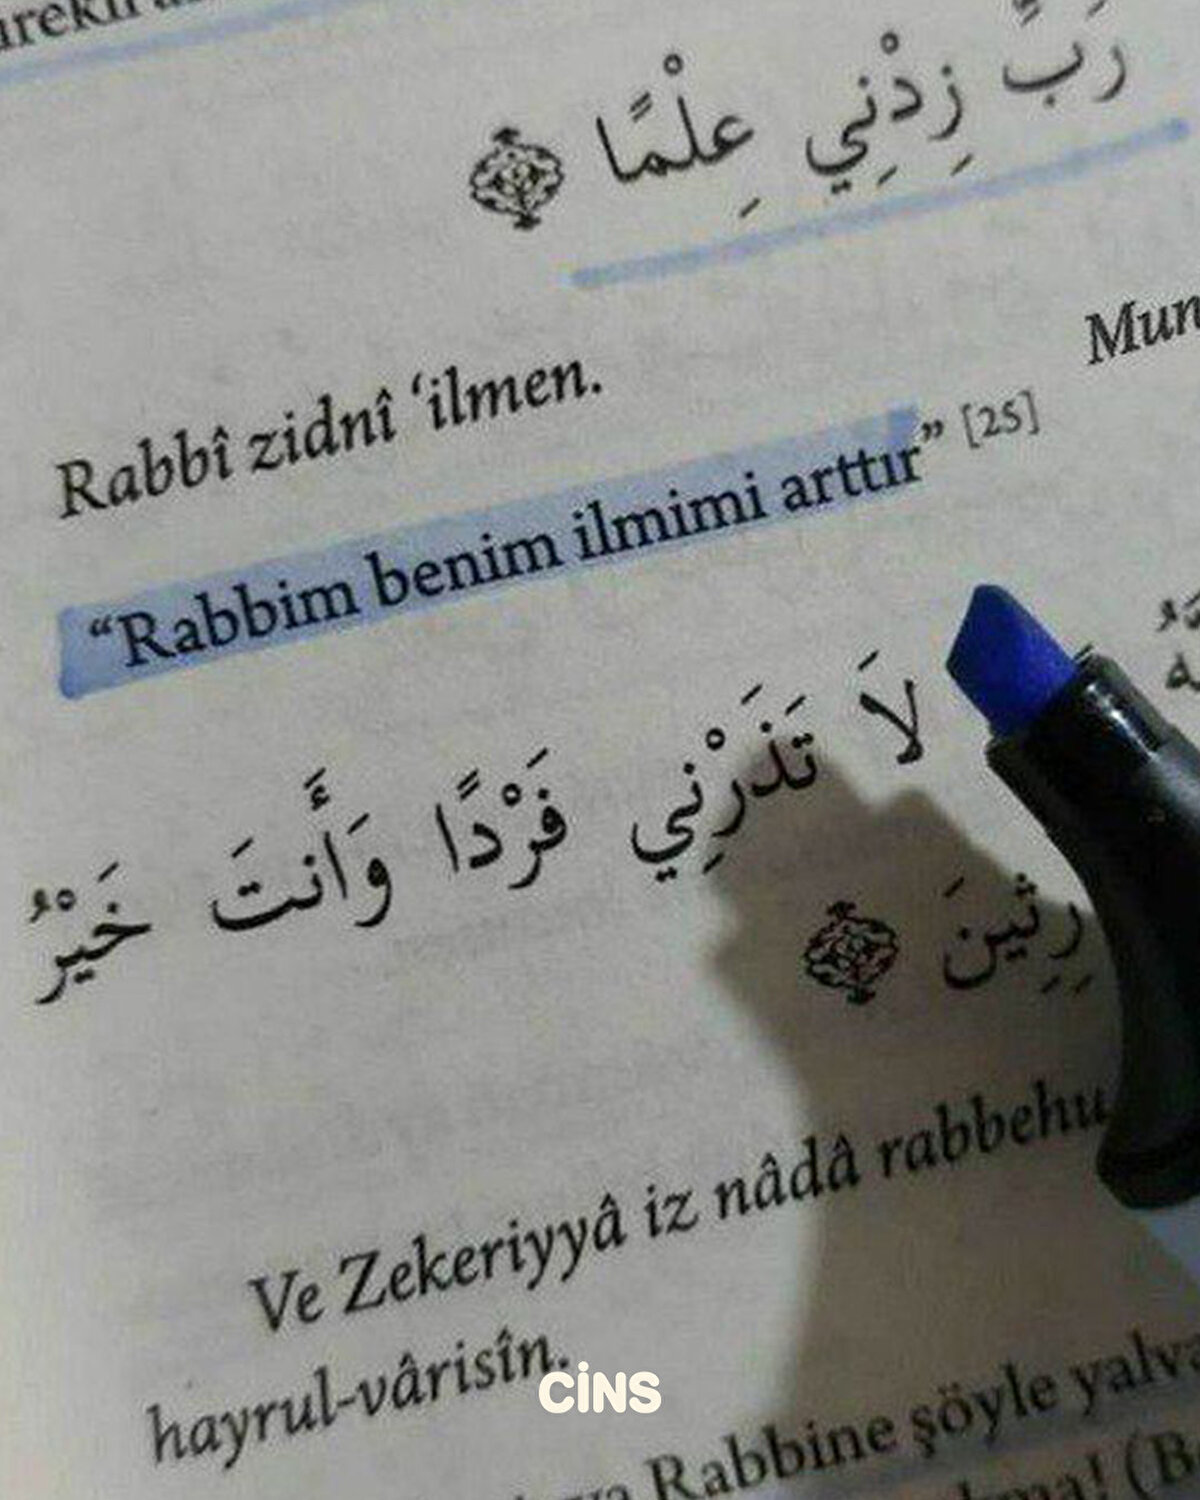 رَبِّ زِدْنِي عِلْمًا
Rabbî zidnî ‘ilmen.
“Rabbim benim ilmimi arttır” [25]
لاَ تَذَرْنِي فَرْدًا وَأَنتَ خَيْرُ
Ve Zekeriyyâ iz nâdâ rabbehu
hayrul-vârisîn.
CİNS
Rabbine şöyle